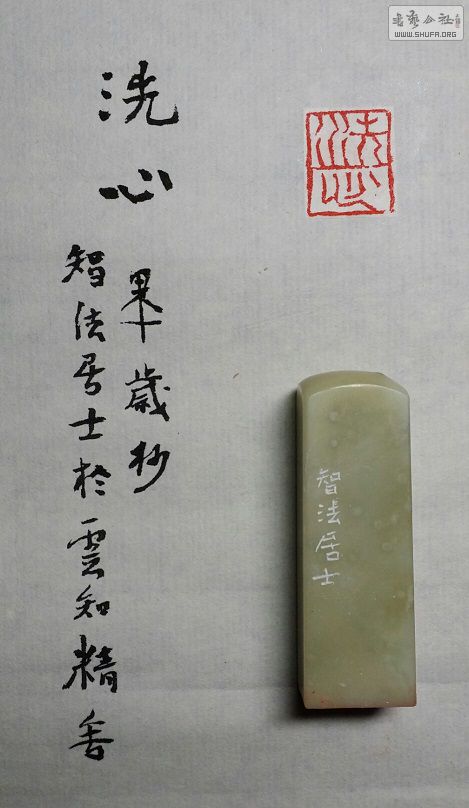 書藝公社
WWW.SHUFA.ORG
洗心
歲杪
智法居士於雲知精舍
洗心
智法居士